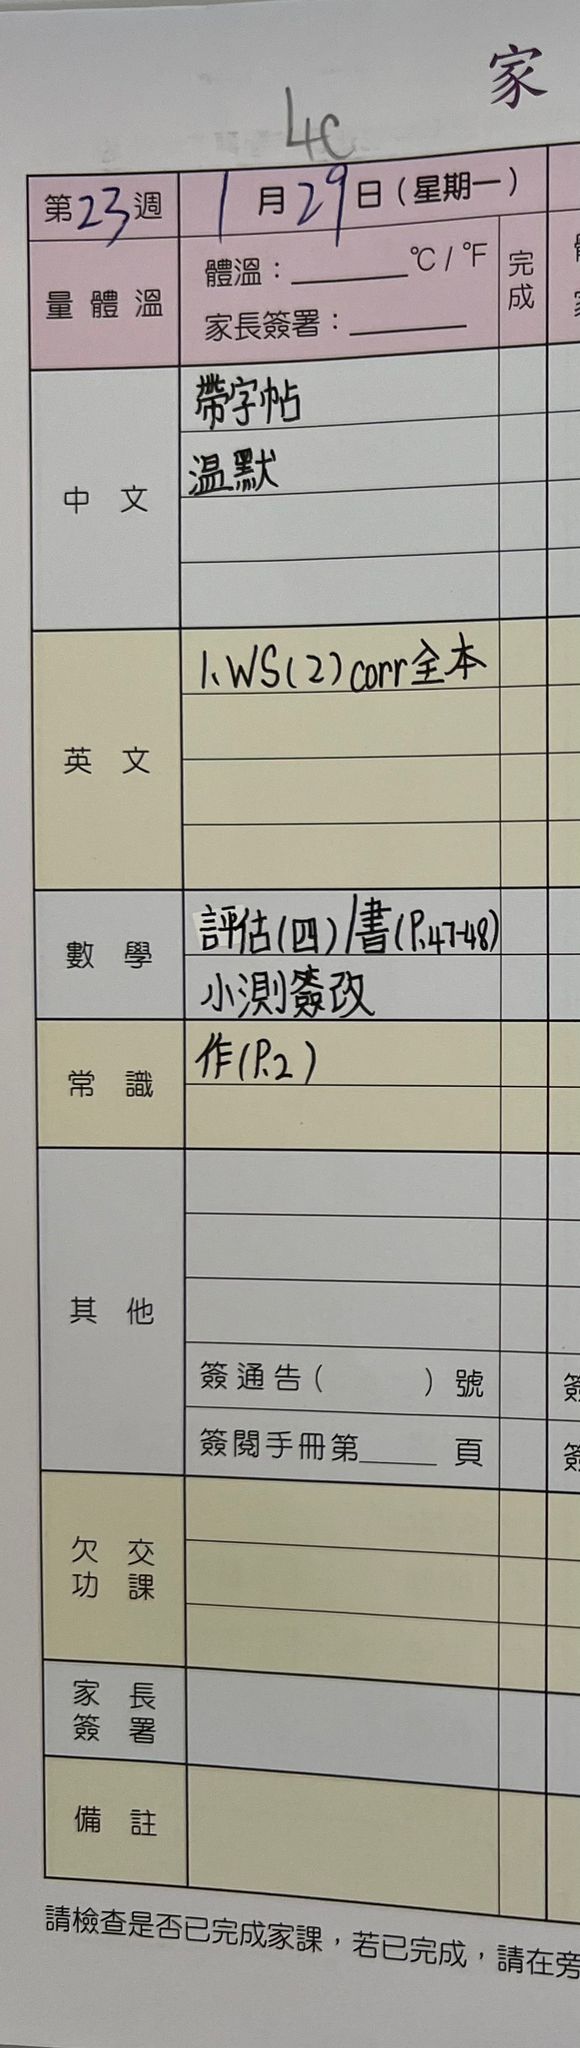 家
4C
第23週 1月29日(星期一)
量體溫 體溫：______°C/°F 完成
家長簽署：______
中文 帶字帖
温默
英文 1、WS(2)corr全本
數學 評估(四)/書(P.47-48)
小測簽改
常識 作(P.2)
其他
簽通告( )號
簽閱手冊第____頁
欠交功課
家長簽署
備註
請檢查是否已完成家課，若已完成，請在旁